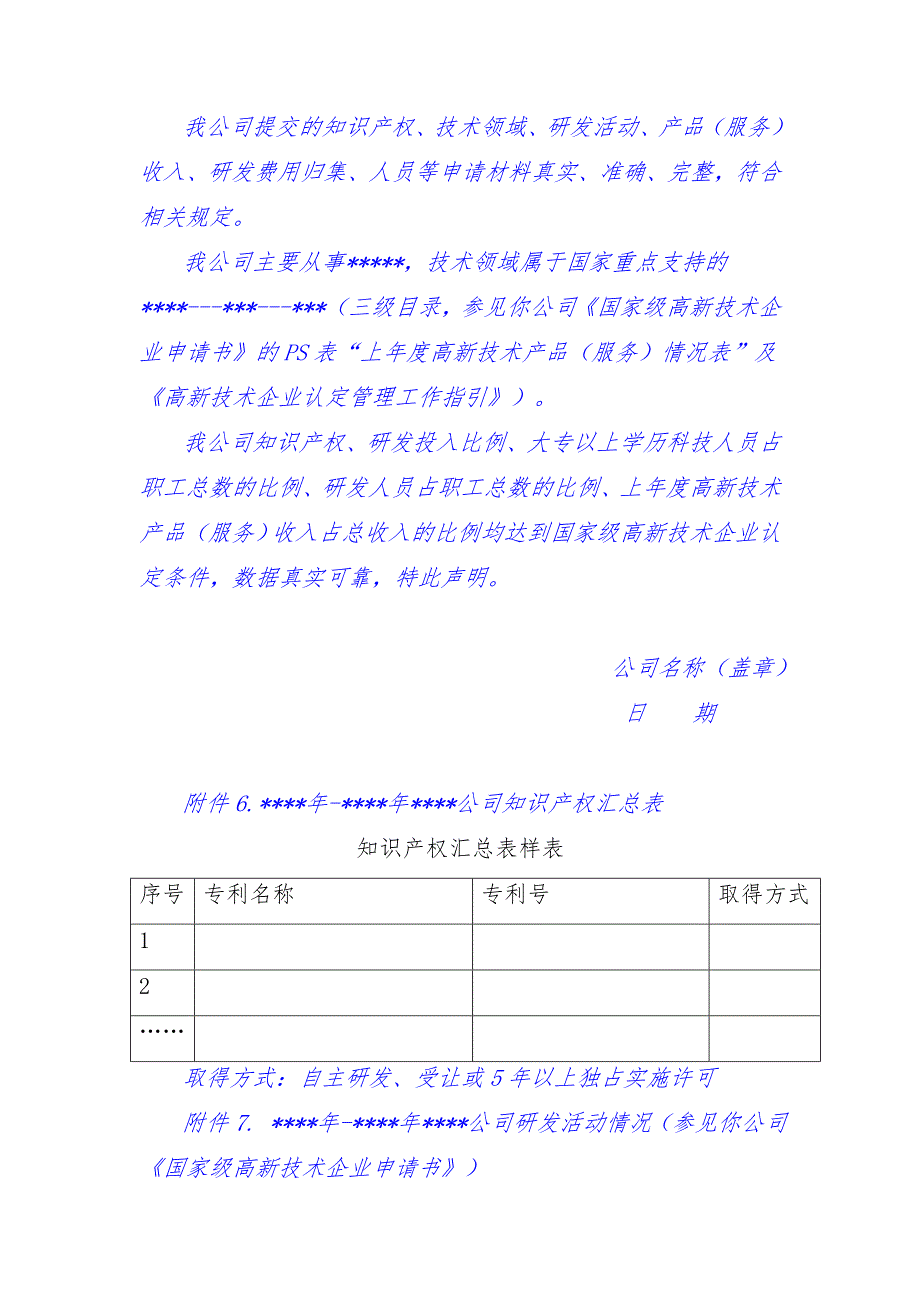 我公司提交的知识产权、技术领域、研发活动、产品（服务）
收入、研发费用归集、人员等申请材料真实、准确、完整，符合
相关规定。
我公司主要从事*****，技术领域属于国家重点支持的
****---***---***（三级目录，参见你公司《国家级高新技术企
业申请书》的 PS 表“上年度高新技术产品（服务）情况表”及
《高新技术企业认定管理工作指引》）。
我公司知识产权、研发投入比例、大专以上学历科技人员占
职工总数的比例、研发人员占职工总数的比例、上年度高新技术
产品（服务）收入占总收入的比例均达到国家级高新技术企业认
定条件，数据真实可靠，特此声明。
公司名称（盖章）
日 期
附件 6.****年-****年****公司知识产权汇总表
知识产权汇总表样表
序号 专利名称 专利号 取得方式
1
2
……
取得方式：自主研发、受让或 5 年以上独占实施许可
附件 7. ****年-****年****公司研发活动情况（参见你公司
《国家级高新技术企业申请书》）